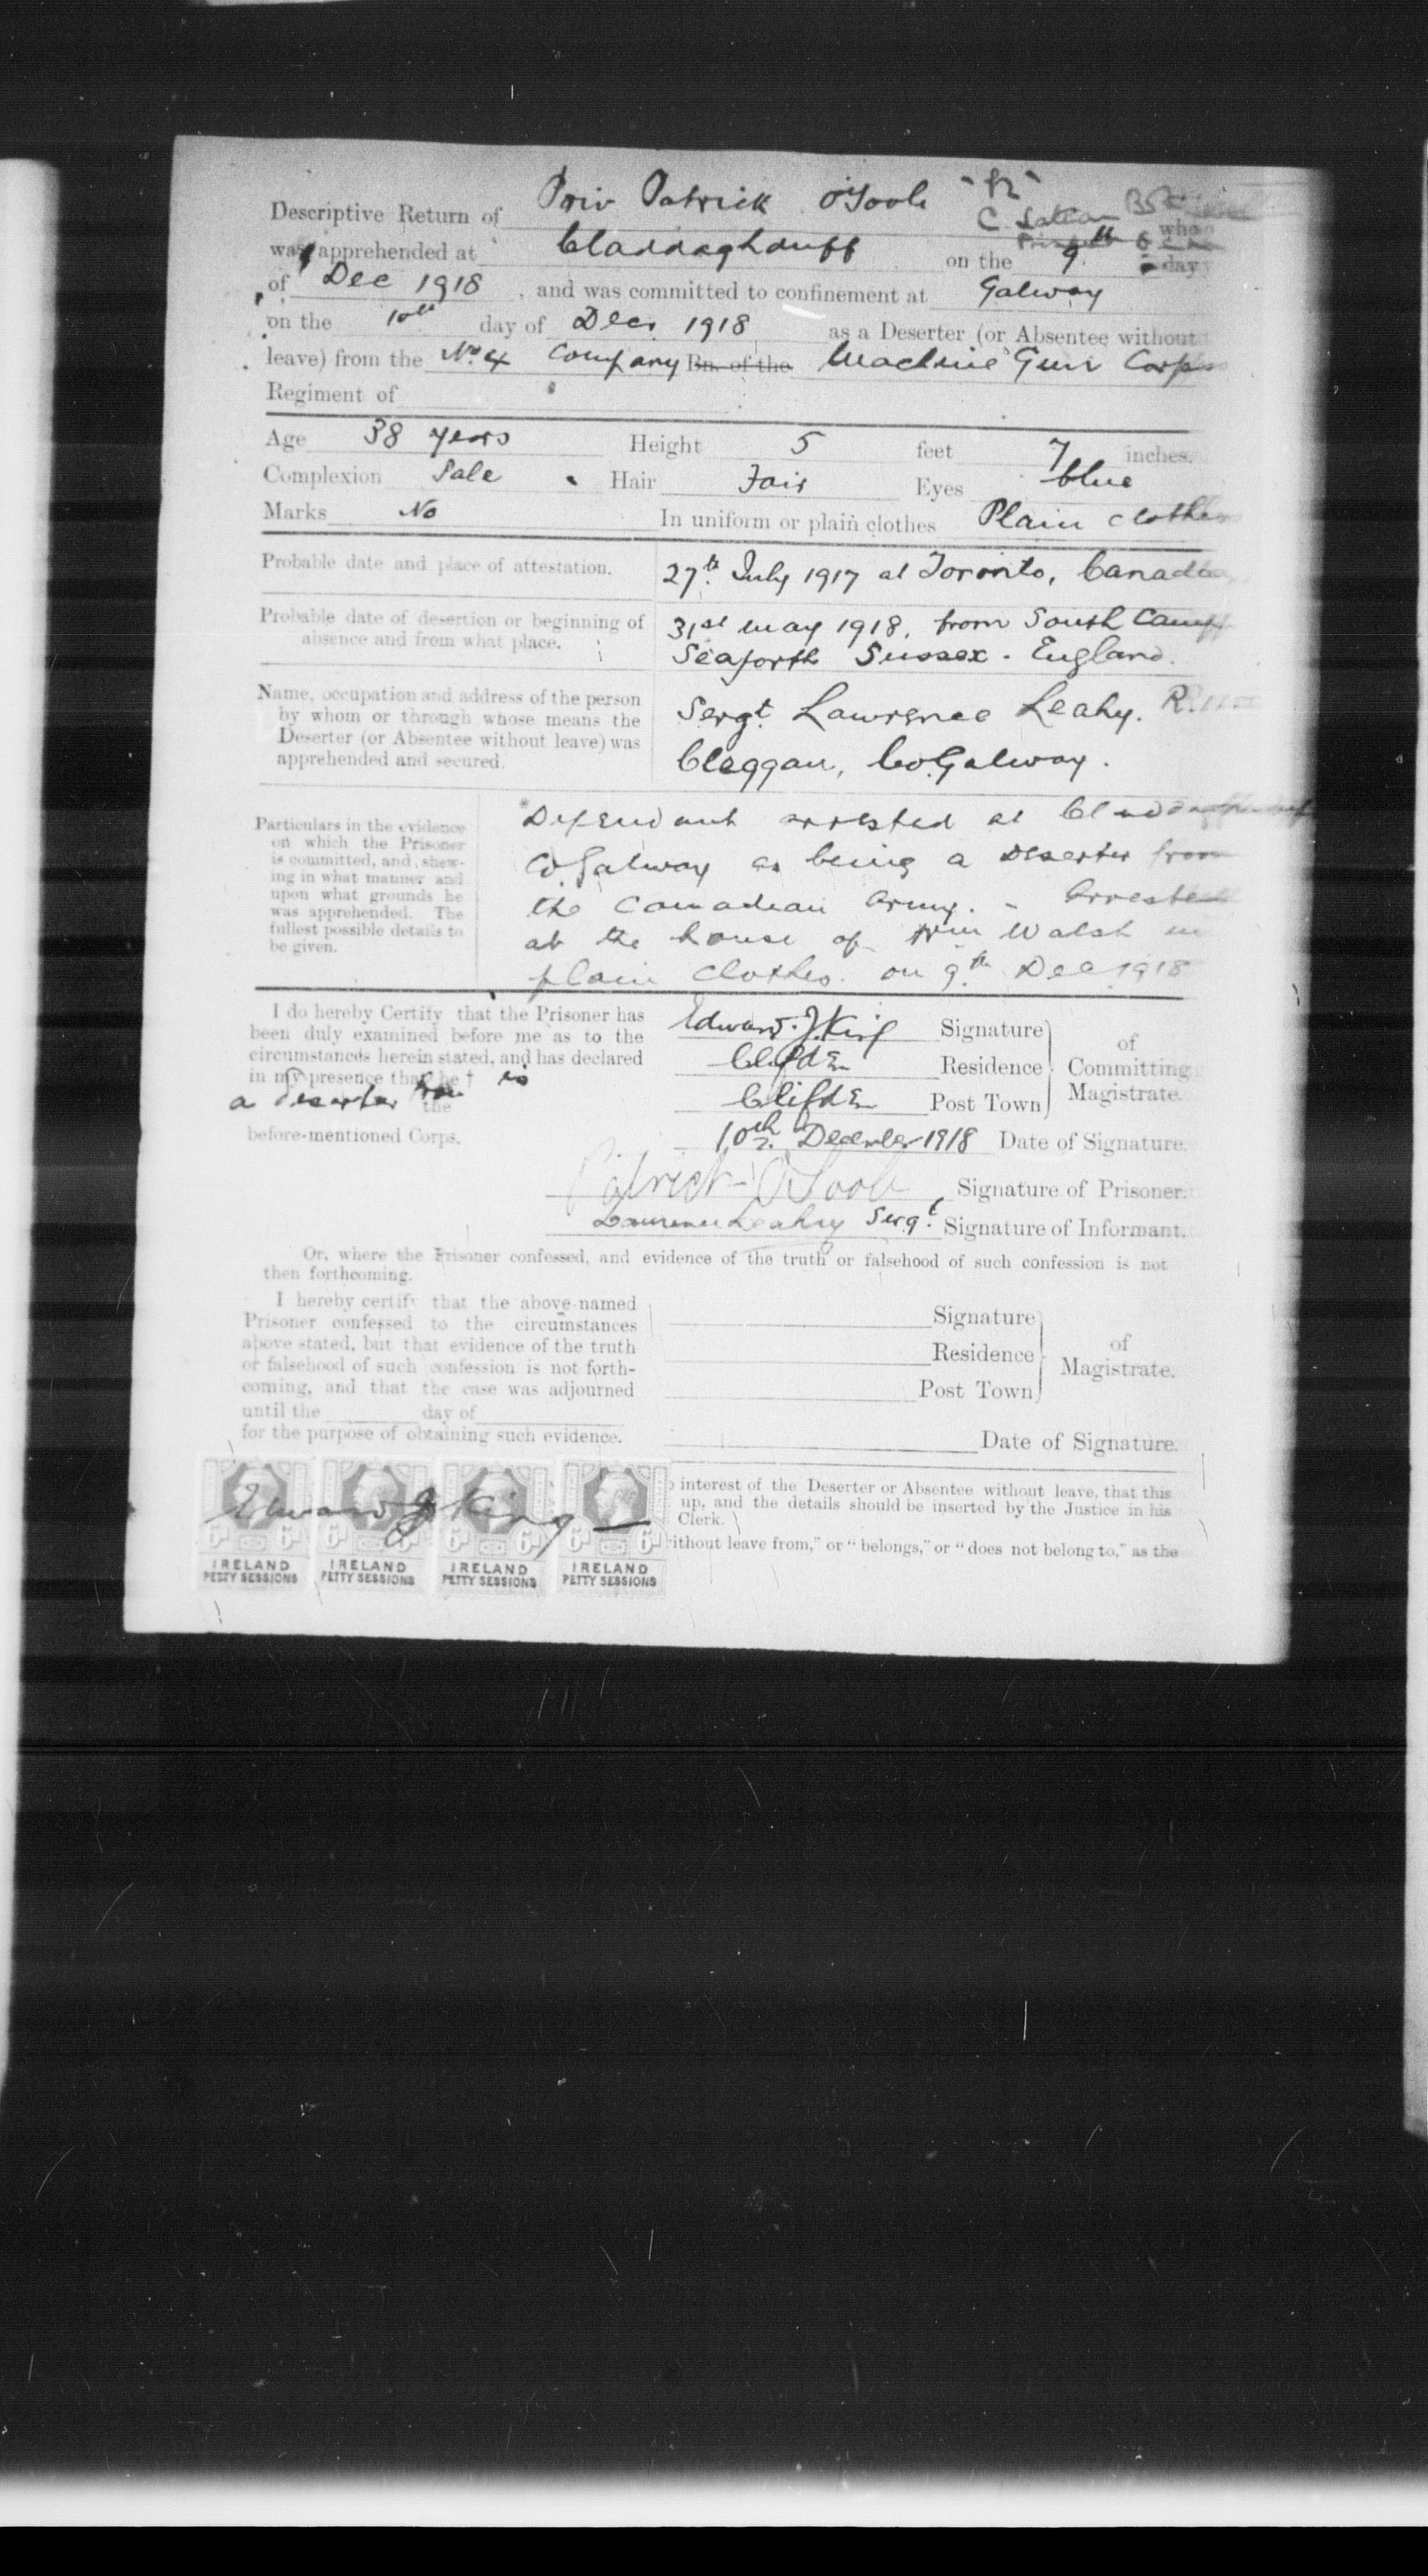 Descriptive Return of Priv Patrick O'Toole
who
was apprehended at Claddaghduff on the 9th day
of Dec 1918, and was committed to confinement at Galway
on the 10th day of Decr. 1918 as a Deserter (or Absentee without
leave) from the No. 4 Company Bn. of the Machine Gun Corps
Regiment of
Age 38 years Height 5 feet 7 inches.
Complexion Pale Hair Fair Eyes blue
Marks No In uniform or plain clothes Plain clothes
Probable date and place of attestation. 27th July 1917 at Toronto, Canada
Probable date of desertion or beginning of absence and from what place.
31st May 1918, from South Camp
Seaforth Sussex. England.
Name, occupation and address of the person
by whom or through whose means the
Deserter (or Absentee without leave) was
apprehended and secured.
Sergt. Lawrence Leahy.
Cleggan, Co. Galway.
Particulars in the evidence
on which the Prisoner
is committed, and shew-
ing in what manner and
upon what grounds he
was apprehended. The
fullest possible details to
be given.
Defendant arrested at Claddaghduff
Co. Galway as being a Deserter from
the Canadian Army. - Arrested
at the house of Wm Walsh in
plain clothes. on 9th Dec 1918
I do hereby Certify that the Prisoner has
been duly examined before me as to the
circumstances herein stated, and has declared
in my presence that he † is
a Deserter from the
before-mentioned Corps.
Edward. J. King Signature
Clifden Residence
Clifden Post Town
of Committing Magistrate.
10th December 1918 Date of Signature.
Patrick O'Toole Signature of Prisoner.
Lawrence Leahy Sergt. Signature of Informant.
Or, where the Prisoner confessed, and evidence of the truth or falsehood of such confession is not
then forthcoming.
I hereby certify that the above-named
Prisoner confessed to the circumstances
above stated, but that evidence of the truth
or falsehood of such confession is not forth-
coming, and that the case was adjourned
until the day of
for the purpose of obtaining such evidence.
Signature
Residence
Post Town
of Magistrate.
Date of Signature.
interest of the Deserter or Absentee without leave, that this
up, and the details should be inserted by the Justice in his
Clerk.
ithout leave from," or "belongs," or "does not belong to," as the
Edward J King
6d 6d 6d 6d 6d 6d 6d 6d
IRELAND IRELAND IRELAND IRELAND
PETTY SESSIONS PETTY SESSIONS PETTY SESSIONS PETTY SESSIONS